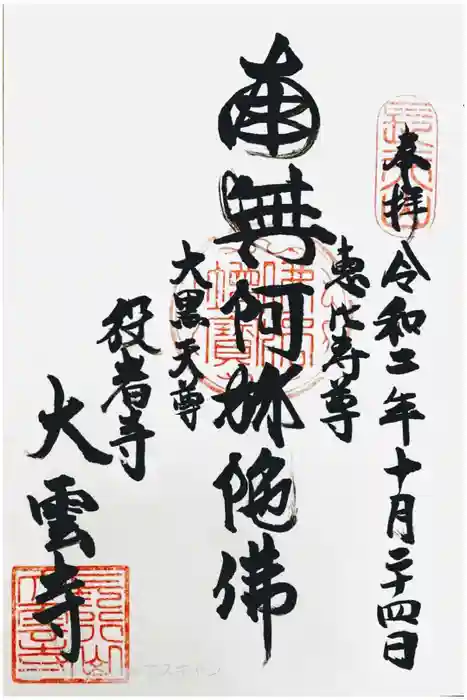 奉拝 令和二年十月二十四日
恵比寿尊
南無阿弥陀佛
大黒天尊
役者寺
大雲寺